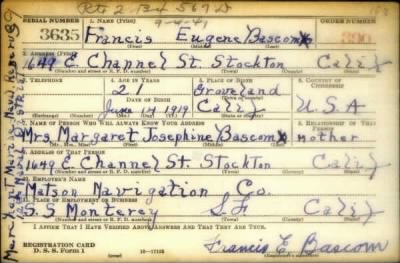 SERIAL NUMBER 1. NAME (Print) ORDER NUMBER
3635 Francis Eugene Bascom
(First) (Middle) (Last)
2. ADDRESS (Print)
1649 E. Channel St. Stockton Calif
(Number and street or R. F. D. number) (Town) (County) (State)
3. TELEPHONE 4. AGE IN YEARS 5. PLACE OF BIRTH 6. COUNTRY OF CITIZENSHIP
21 Groveland
DATE OF BIRTH
June 14 1919 Calif U.S.A
(Exchange) (Number) (Mo.) (Day) (Yr.) (State or country)
7. NAME OF PERSON WHO WILL ALWAYS KNOW YOUR ADDRESS 8. RELATIONSHIP OF THAT PERSON
Mrs. Margaret Josephine Bascom mother
(Mr., Mrs., Miss) (First) (Middle) (Last)
9. ADDRESS OF THAT PERSON
1649 E Channel St. Stockton Calif
(Number and street or R. F. D. number) (Town) (County) (State)
10. EMPLOYER'S NAME
Matson Navigation Co.
11. PLACE OF EMPLOYMENT OR BUSINESS
S.S Monterey S.F Calif
(Number and street or R. F. D. number) (Town) (County) (State)
I AFFIRM THAT I HAVE VERIFIED ABOVE ANSWERS AND THAT THEY ARE TRUE.
REGISTRATION CARD
D. S. S. Form 1 16-17105 Francis E Bascom